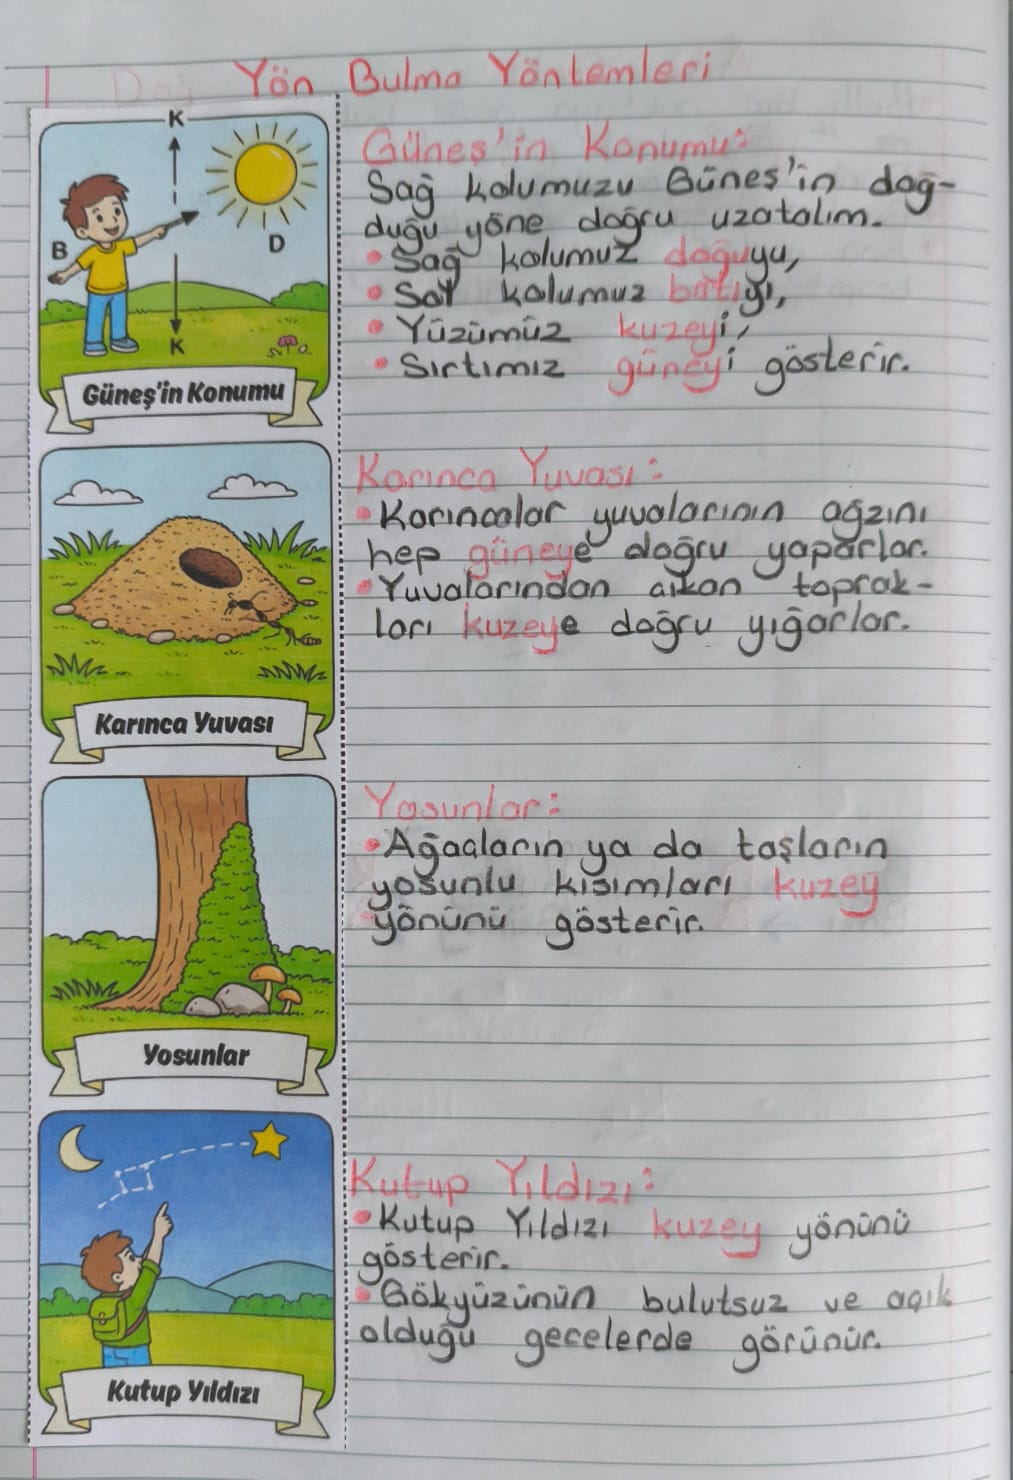 Yön Bulma Yöntemleri
K
B
D
K
Güneş'in Konumu
Güneş'in Konumu:
Sağ kolumuzu Güneş'in doğ-
duğu yöne doğru uzatalım.
• Sağ kolumuz doğuyu,
• Sol kolumuz batıyı,
• Yüzümüz kuzeyi,
• Sırtımız güneyi gösterir.
Karınca Yuvası
Karınca Yuvası:
• Karıncalar yuvalarının ağzını
hep güneye doğru yaparlar.
• Yuvalarından çıkan toprak-
ları kuzeye doğru yığarlar.
Yosunlar
Yosunlar:
• Ağaçların ya da taşların
yosunlu kısımları kuzey
yönünü gösterir.
Kutup Yıldızı
Kutup Yıldızı:
• Kutup Yıldızı kuzey yönünü
gösterir.
• Gökyüzünün bulutsuz ve açık
olduğu gecelerde görünür.